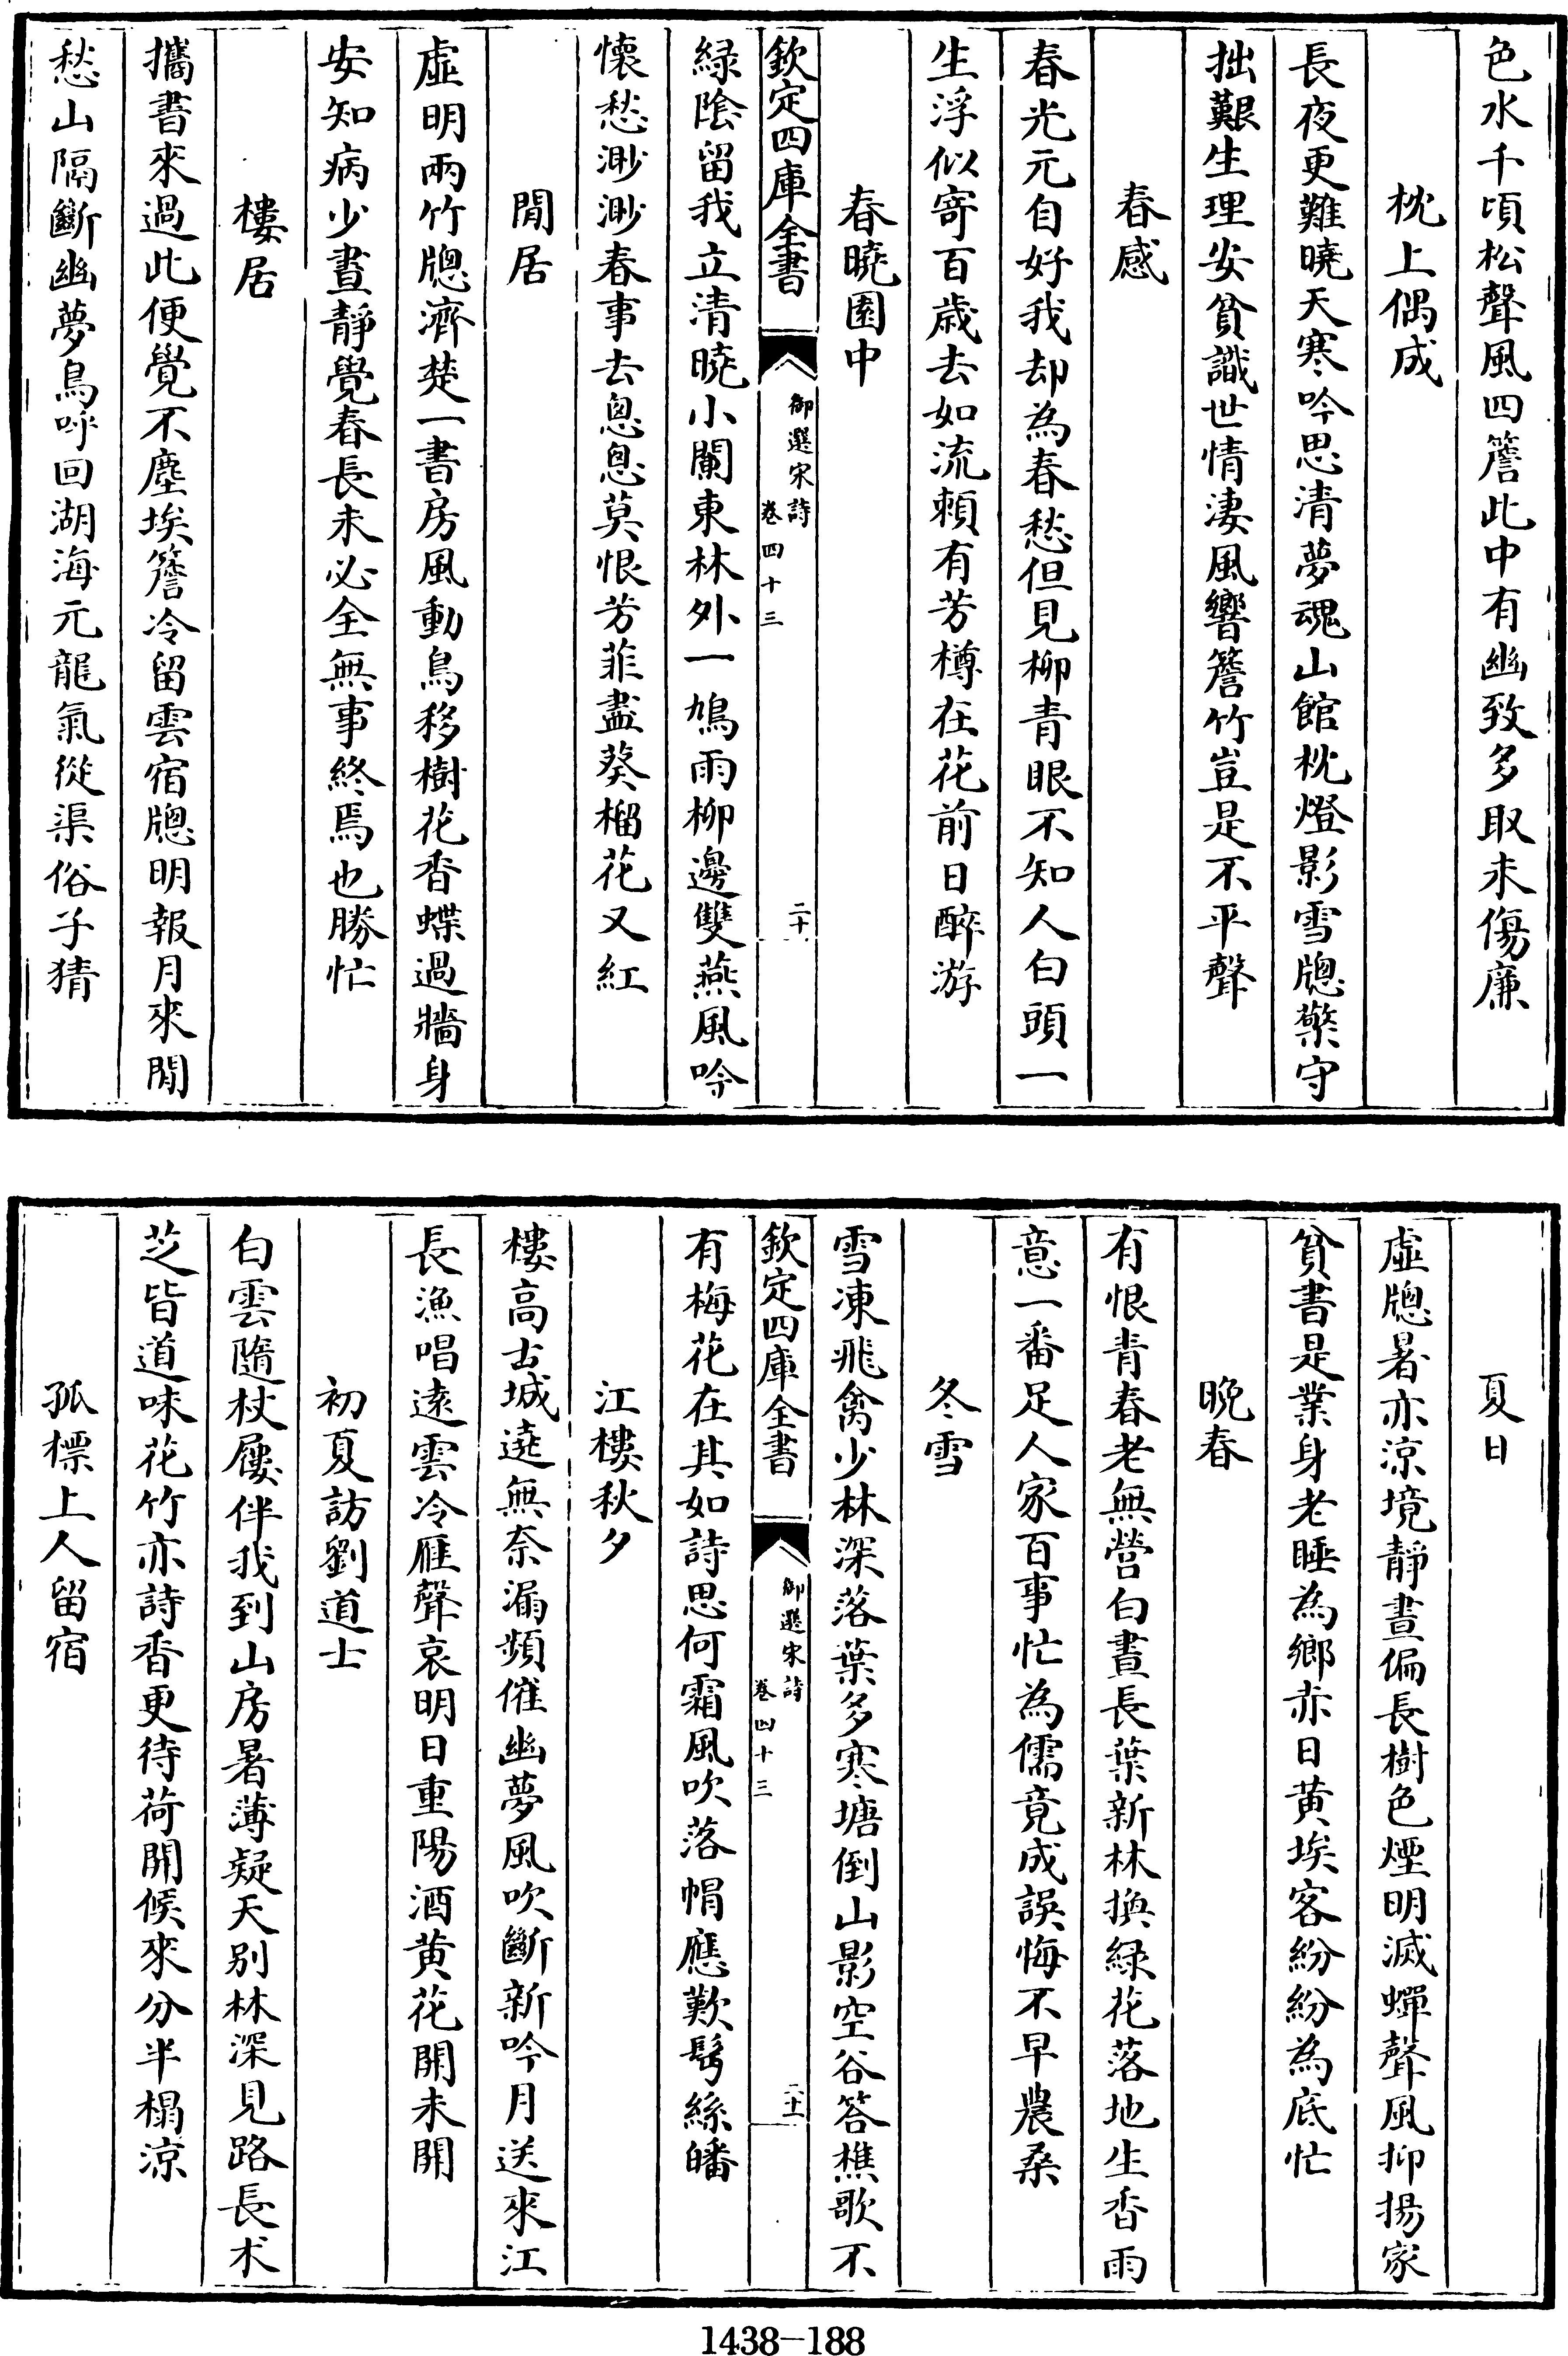 色水千頃松聲風四簷此中有幽致多取未傷廉
枕上偶成
長夜更難曉天寒吟思清夢魂山館枕燈影雪牕檠守
拙艱生理安貧識世情淒風響簷竹豈是不平聲
春感
春光元自好我却為春愁但見柳青眼不知人白頭一
生浮似寄百歲去如流賴有芳樽在花前日醉游
春曉園中
欽定四庫全書
御選宋詩
卷四十三
二十
緑陰留我立清曉小闌東林外一鳩雨柳邊雙燕風吟
懷愁渺渺春事去悤悤莫恨芳菲盡葵榴花又紅
閒居
虛明兩竹牕濟楚一書房風動鳥移樹花香蝶過牆身
安知病少晝靜覺春長未必全無事終焉也勝忙
樓居
攜書來過此便覺不塵埃簷冷留雲宿牕明報月來閒
愁山隔斷幽夢鳥呼回湖海元龍氣從渠俗子猜
夏日
虛牕暑亦涼境靜晝偏長樹色煙明滅蟬聲風抑揚家
貧書是業身老睡為鄉赤日黄埃客紛紛為底忙
晚春
有恨青春老無營白晝長葉新林換緑花落地生香雨
意一番足人家百事忙為儒竟成誤悔不早農桑
冬雪
雪凍飛禽少林深落葉多寒塘倒山影空谷答樵歌不
欽定四庫全書
御選宋詩
卷四十三
二十一
有梅花在其如詩思何霜風吹落帽應歎鬢絲皤
江樓秋夕
樓高古城遶無奈漏頻催幽夢風吹斷新吟月送來江
長漁唱遠雲冷雁聲哀明日重陽酒黄花開未開
初夏訪劉道士
白雲隨杖屨伴我到山房暑薄疑天別林深見路長朮
芝皆道味花竹亦詩香更待荷開候來分半榻涼
孤標上人留宿
1438—188